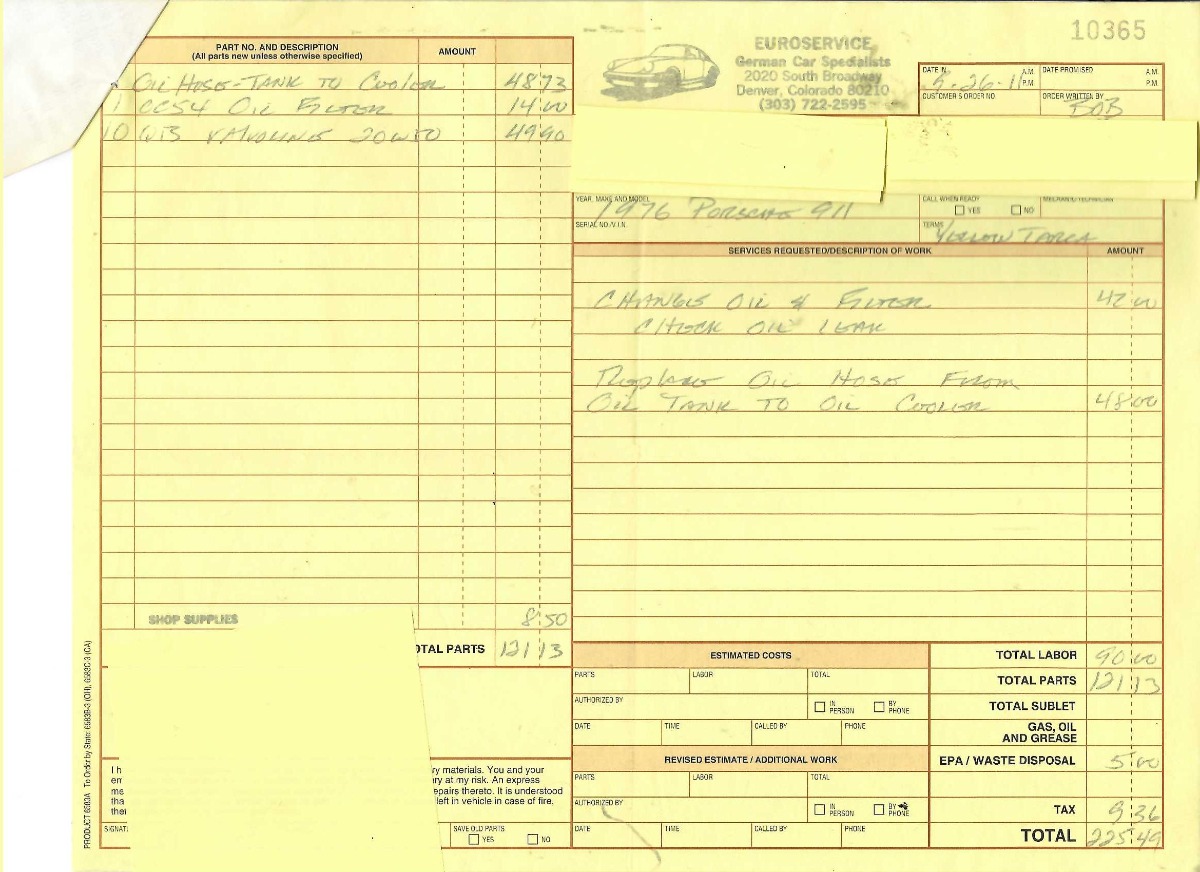 10365
EUROSERVICE
German Car Specialists
2020 South Broadway
Denver, Colorado 80210
(303) 722-2595
DATE IN
5-26-11
A.M.
P.M.
DATE PROMISED
A.M.
P.M.
CUSTOMER'S ORDER NO.
ORDER WRITTEN BY
BOB
PART NO. AND DESCRIPTION
(All parts new unless otherwise specified)
AMOUNT
OIL HOSE-TANK TO COOLER 48 73
1 CCS4 OIL FILTER 14 00
10 QTS VALVOLINE 20W50 49 90
SHOP SUPPLIES 8 50
OTAL PARTS 121 13
YEAR, MAKE AND MODEL
1976 PORSCHE 911
CALL WHEN READY
YES NO
MECHANIC/TECHNICIAN
SERIAL NO./V.I.N.
TERMS
YELLOW TARGA
SERVICES REQUESTED/DESCRIPTION OF WORK AMOUNT
CHANGE OIL & FILTER 42 00
CHECK OIL LEAK
REPLACE OIL HOSE FROM
OIL TANK TO OIL COOLER 48 00
ESTIMATED COSTS
PARTS LABOR TOTAL
AUTHORIZED BY
IN PERSON BY PHONE
DATE TIME CALLED BY PHONE
REVISED ESTIMATE / ADDITIONAL WORK
PARTS LABOR TOTAL
AUTHORIZED BY
IN PERSON BY PHONE
DATE TIME CALLED BY PHONE
TOTAL LABOR 90 00
TOTAL PARTS 121 13
TOTAL SUBLET
GAS, OIL
AND GREASE
EPA / WASTE DISPOSAL 5 00
TAX 9 36
TOTAL 225 49
I h
em
me
tha
ther
ry materials. You and your
ery at my risk. An express
epairs thereto. It is understood
left in vehicle in case of fire,
SIGNAT
SAVE OLD PARTS
YES NO
PRODUCT 6583A To Order by State: 6583B-3 (OH), 6583C-3 (CA)